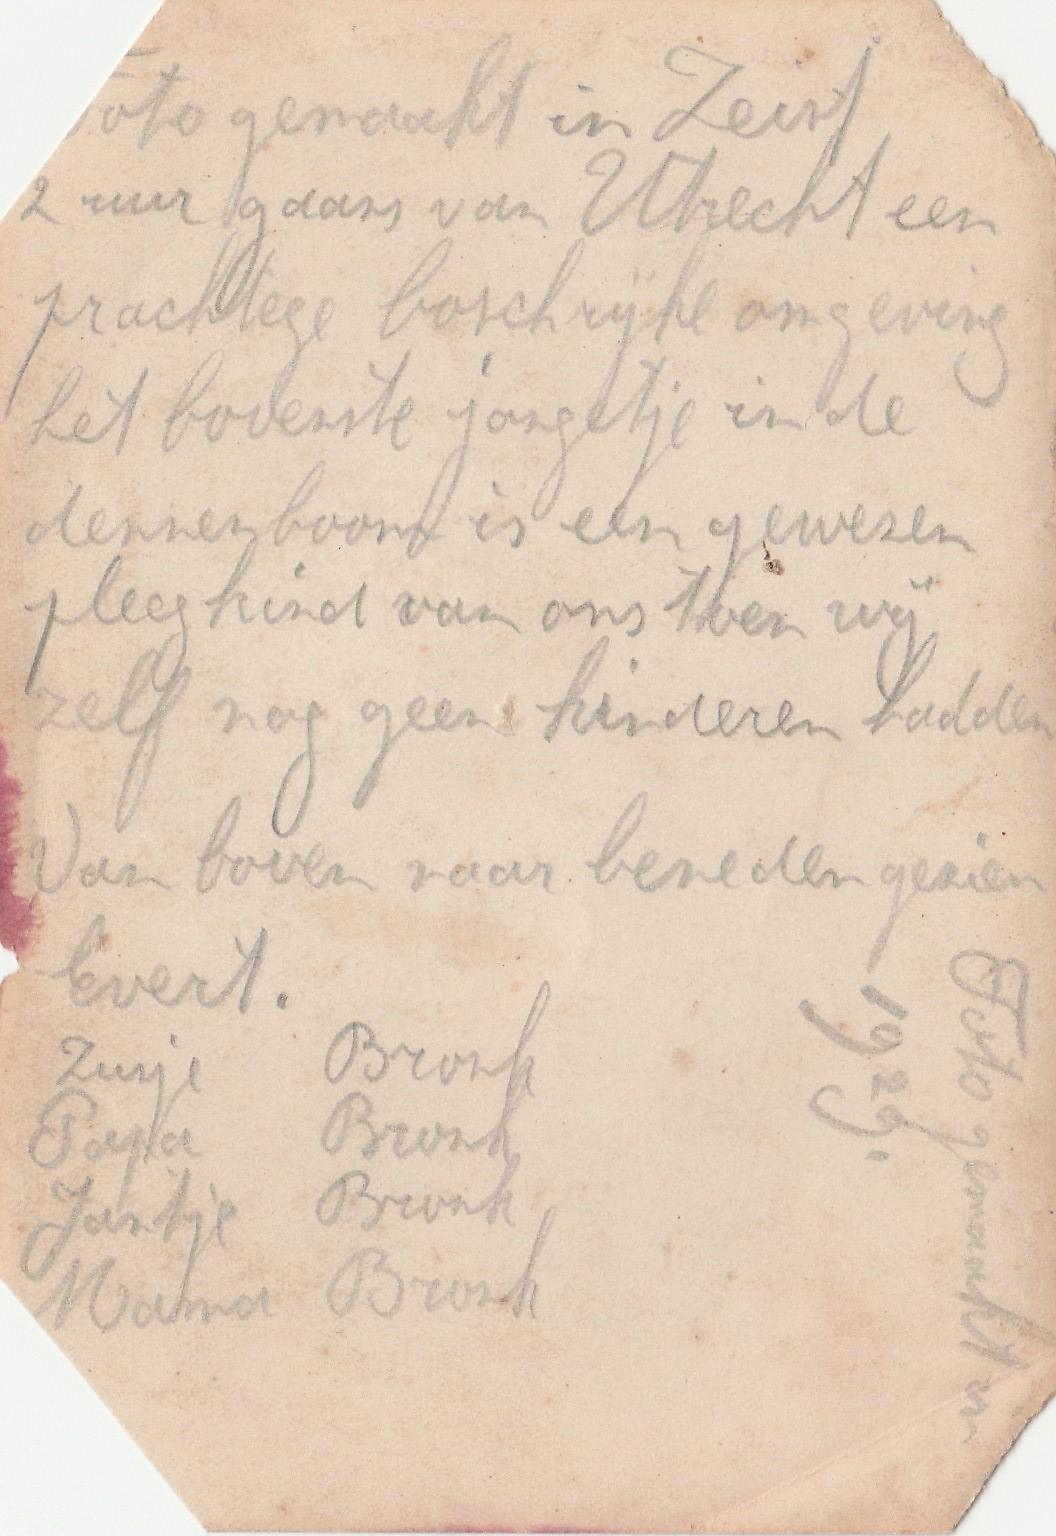 Foto gemaakt in Zeist
2 uur gaans van Utrecht een
prachtege boschrijke omgeving
het bovenste jongetje in de
dennenboom is een gewesen
pleegkind van ons toen wij
zelf nog geen kinderen hadden
Van boven naar beneden gezien
Evert.
Zusje Bronk
Papa Bronk
Jantje Bronk
Mama Bronk
Foto gemaakt in
1929.